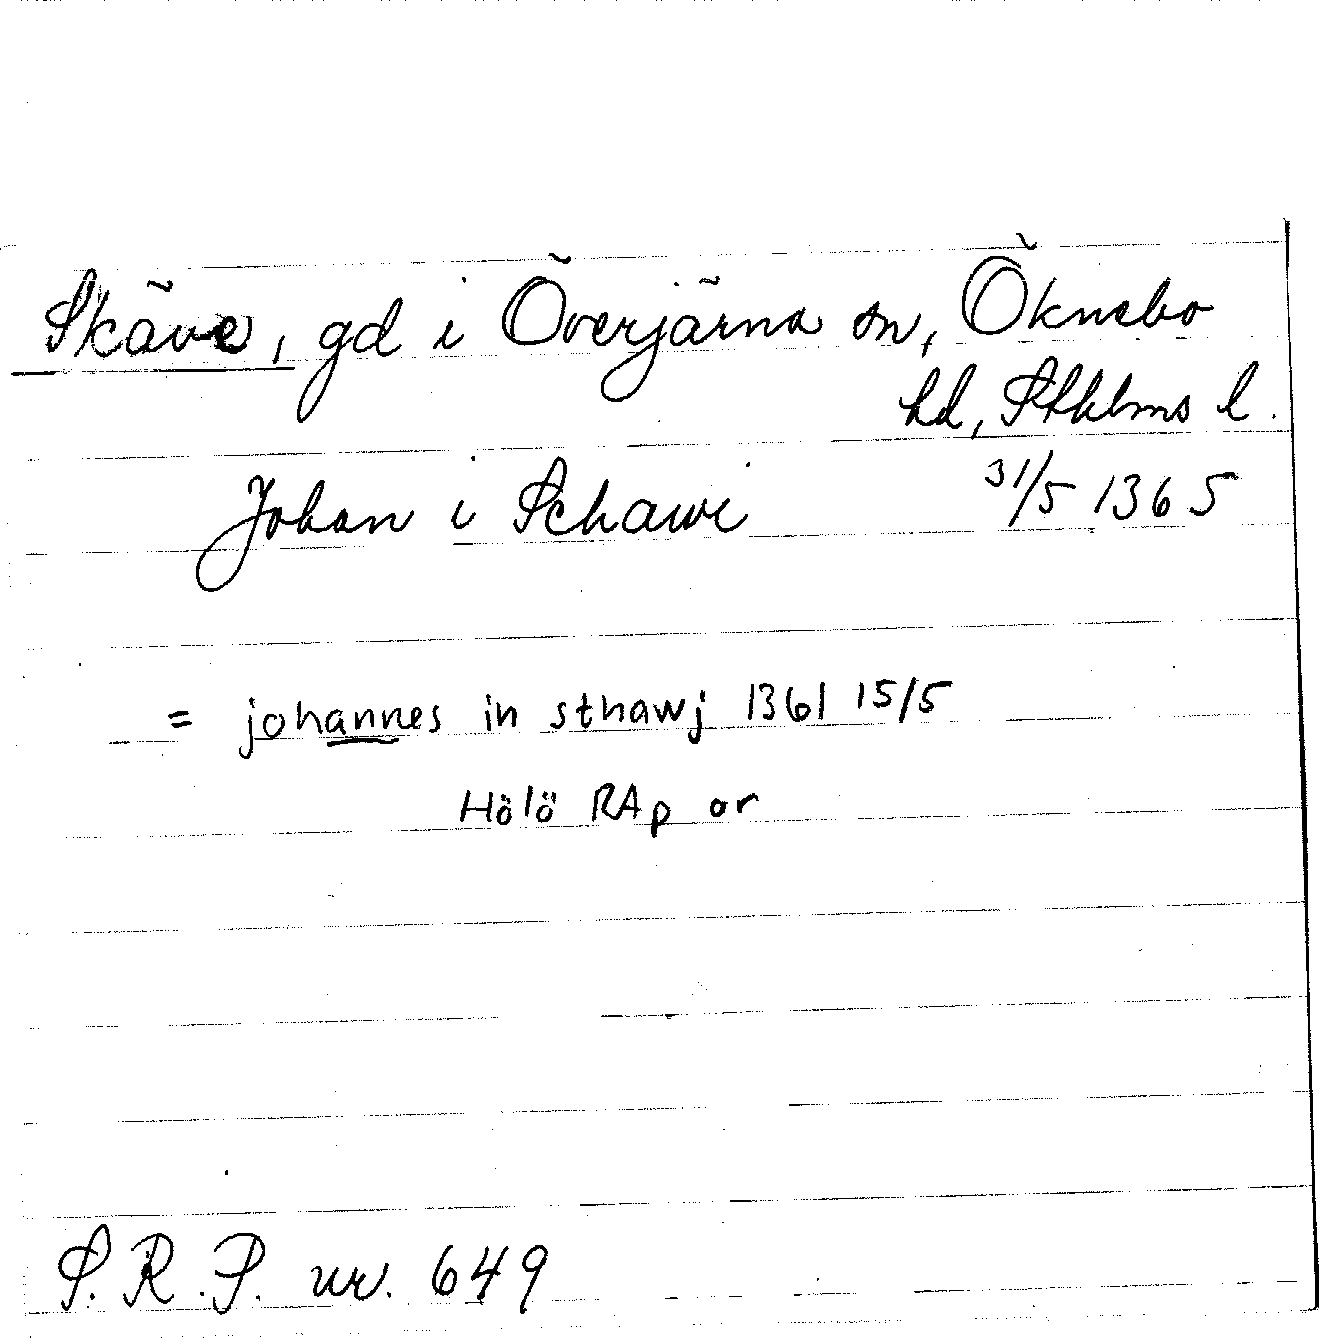 Skäve, gd i Överjärna sn, Öknebo
hd, Sthlms l.
Johan i Schawe 31/5 1365
= johannes in sthawj 1361 15/5
Hölö RAp or
S.R.P. nr. 649